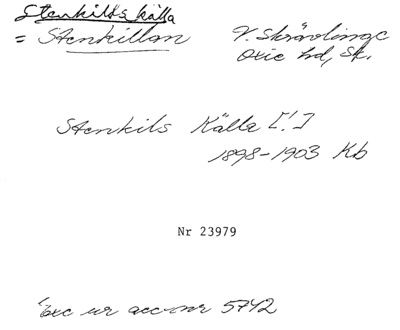 Stenkilds källa
= Stenkillan
V. Skrävlinge
Oxie hd, Sk.
Stenkils Källa [!]
1898-1903 Kb
Nr 23979
Exc ur acc-nr 5742